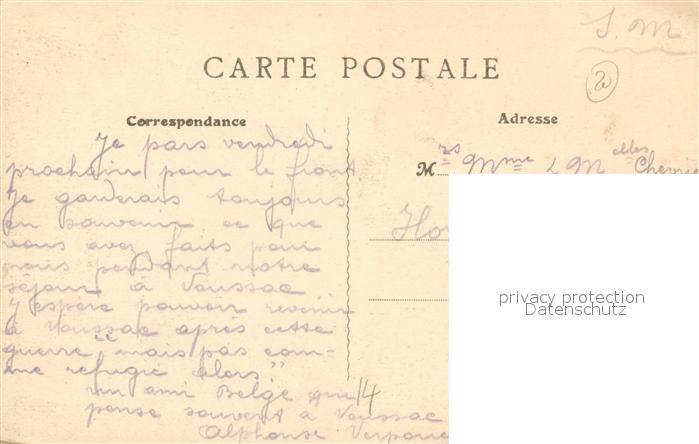 S. M
2
CARTE POSTALE
Correspondance
Adresse
Je pars vendredi
prochain pour le front
Je garderais toujours
en souvenir ce que
vous avez faits pour
nous pendant notre
séjour à Voussac
J'espère pouvoir revenir
à Voussac après cette
guerre "mais pas com-
me refugié alors."
un ami Belge qui
pense souvent à Voussac
Alphonse
14
Mrs Mme & Melles
privacy protection
Datenschutz